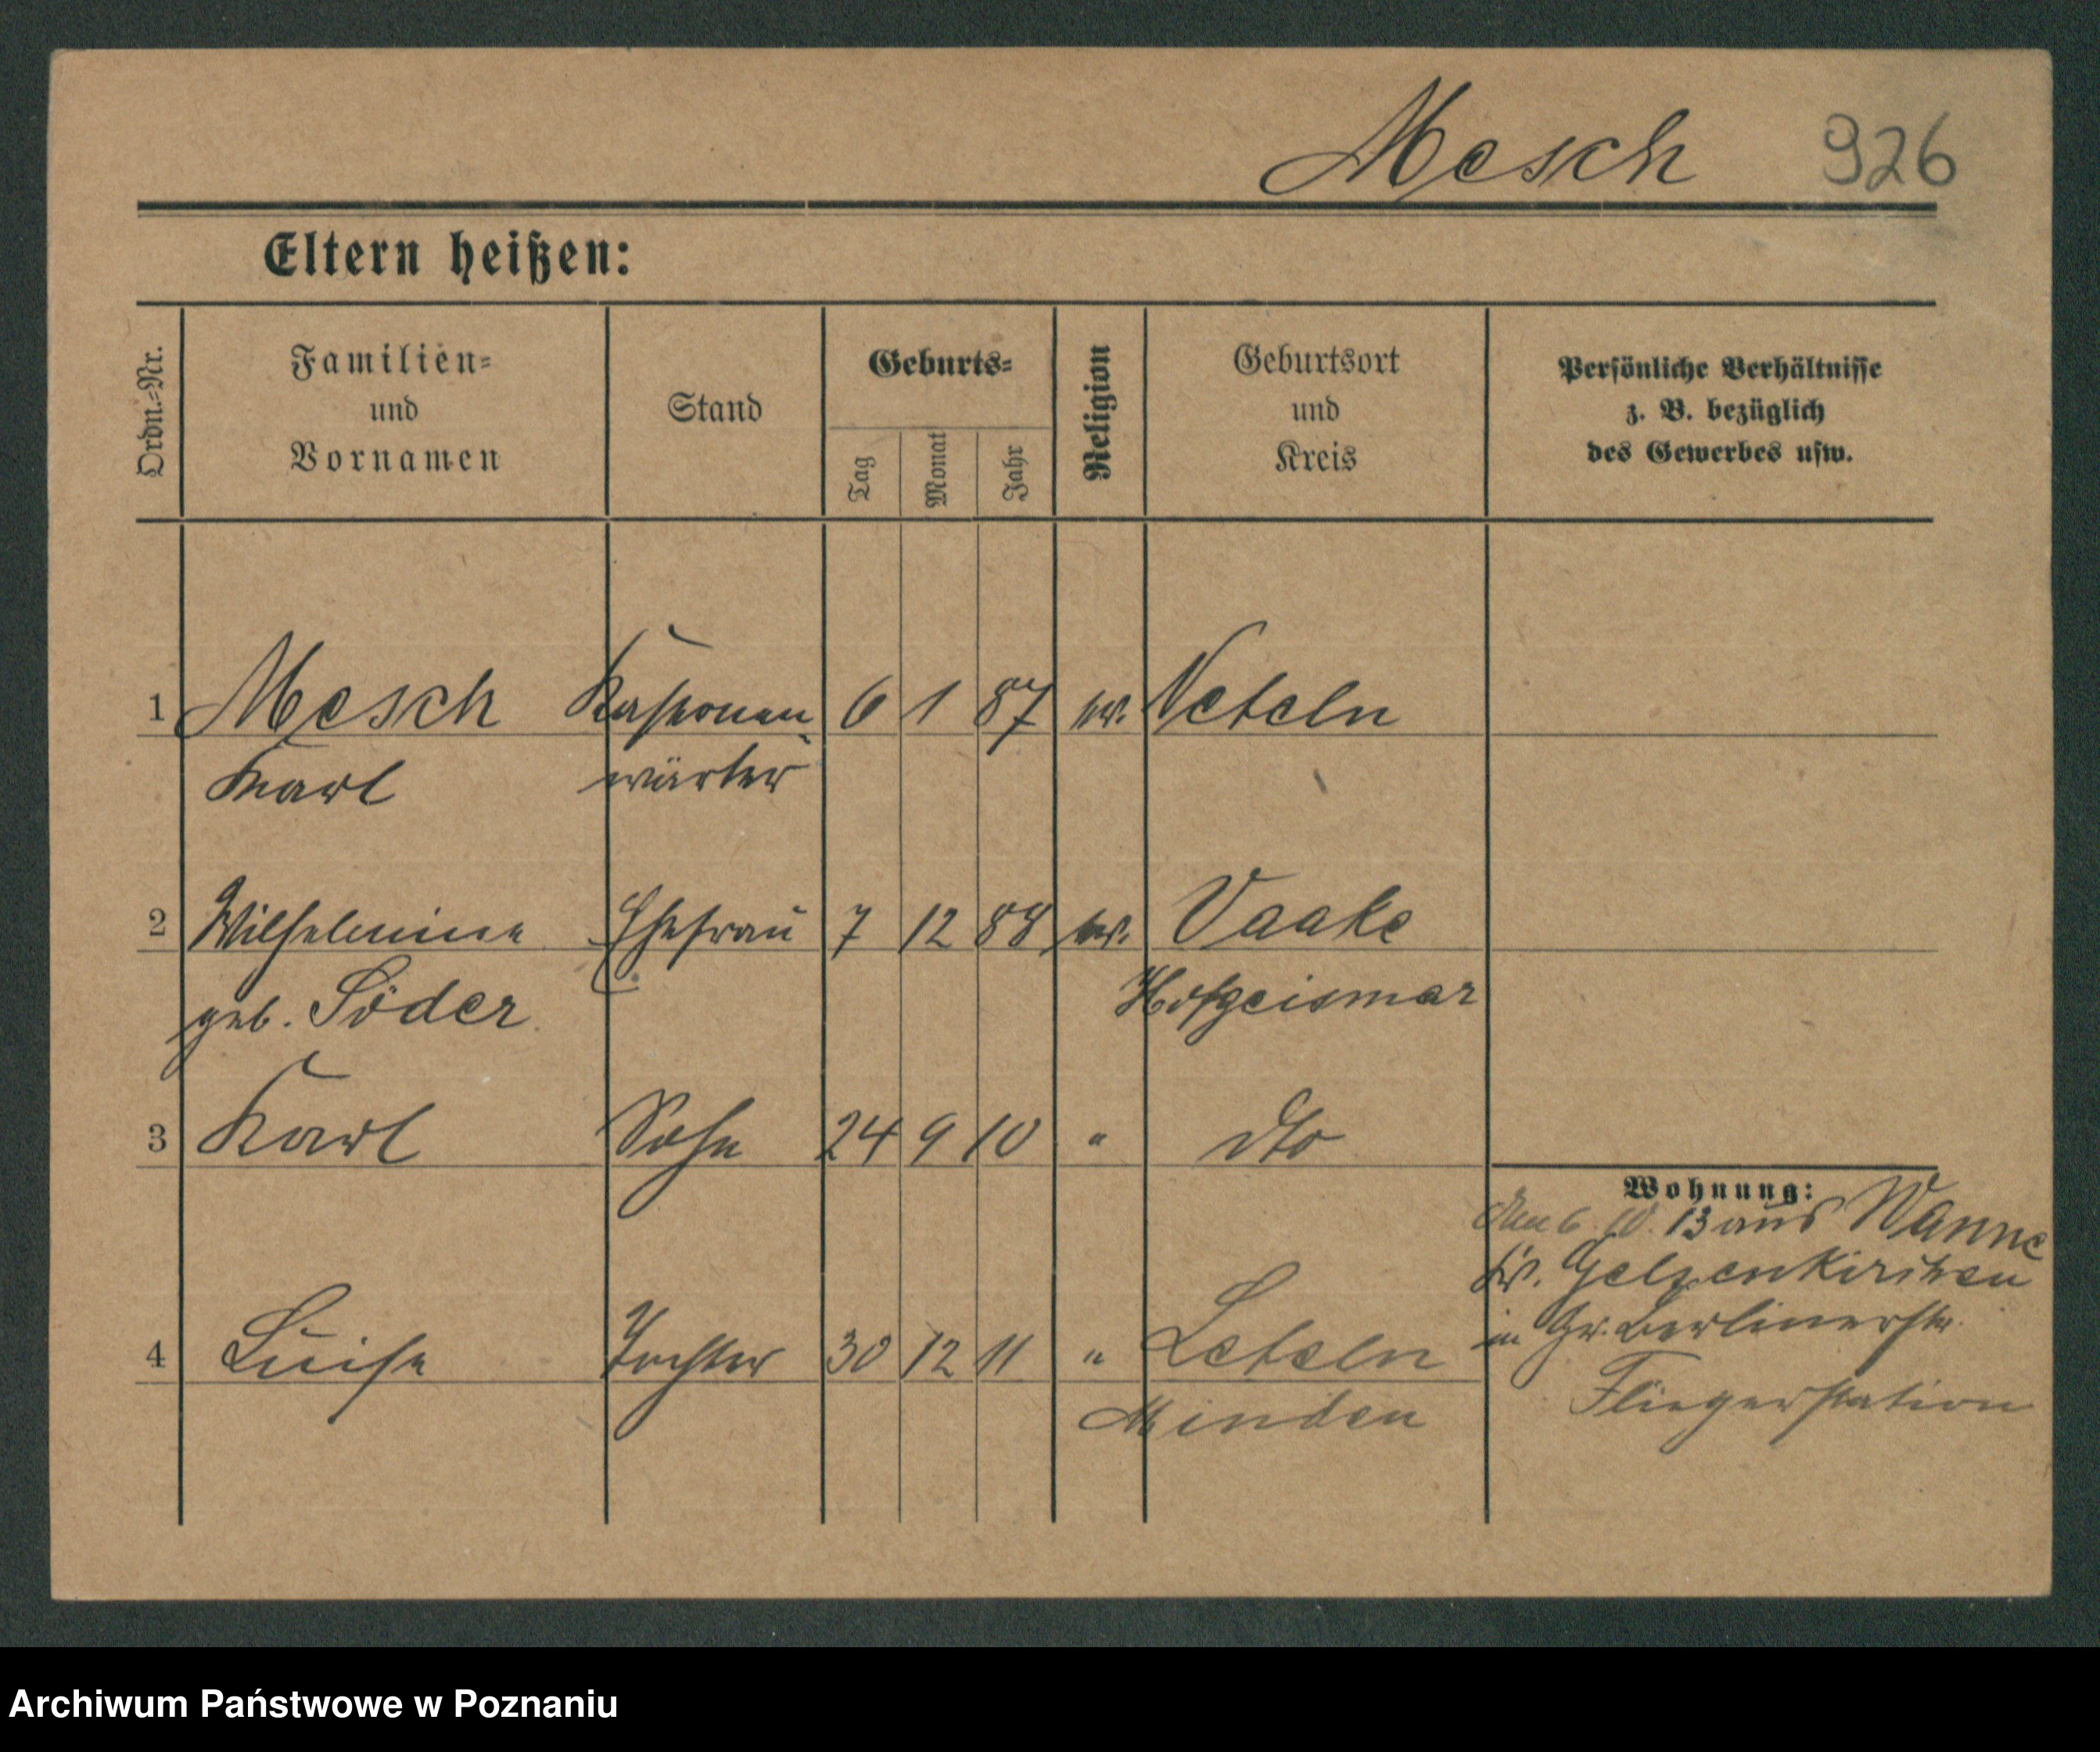 Mesch 926
Eltern heißen:
Ordn.-Nr.
Familien-
und
Vornamen
Stand
Geburts-
Tag
Monat
Jahr
Religion
Geburtsort
und
Kreis
Persönliche Verhältnisse
z. B. bezüglich
des Gewerbes usw.
1 Mesch Kasernen 6 1 87 ev. Neteln
Karl wärter
2 Wilhelmine Ehefrau 7 12 88 ev. Vaake
geb. Söder Hofgeismar
3 Karl Sohn 24 9 10 " dto
4 Luise Tochter 30 12 11 " Leteln
Minden
Wohnung:
den 6. 10. 13 aus Wanne
Kr. Gelsenkirchen
in Gr. Berlinerstr.
Fliegerstation
Archiwum Państwowe w Poznaniu